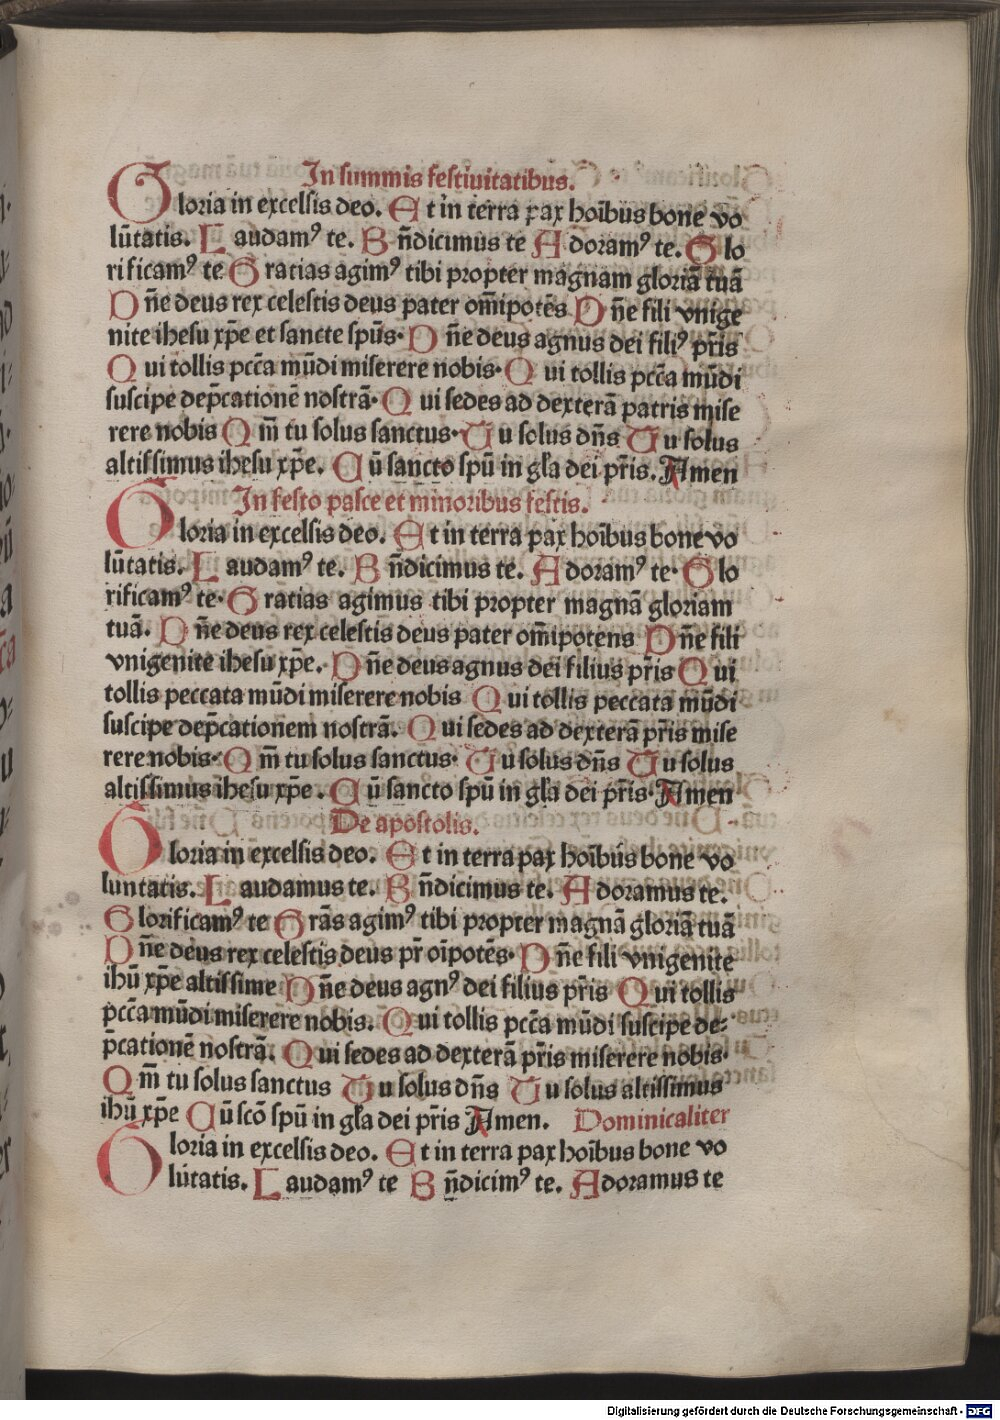 In summis festiuitatibus.
Gloria in excelsis deo. Et in terra pax hoībus bone vo
lūtatis. Laudamꝰ te. Bn̄dicimus te Adoramꝰ te. Glo
rificamꝰ te Gratias agimꝰ tibi propter magnam gloriā tuā
Dn̄e deus rex celestis deus pater om̄ipotēs Dn̄e fili vnige
nite ihesu xp̄e et sancte spūs. Dn̄e deus agnus dei filiꝰ pr̄is
Qui tollis pcc̄a mūdi miserere nobis. Qui tollis pcc̄a mūdi
suscipe dep̄cationē nostrā. Qui sedes ad dexterā patris mise
rere nobis Qm̄ tu solus sanctus. Tu solus dn̄s Tu solus
altissimus ihesu xp̄e. Cū sancto spū in gl̄a dei pr̄is. Amen
In festo pasce et minoribus festis.
Gloria in excelsis deo. Et in terra pax hoībus bone vo
lūtatis. Laudamꝰ te. Bn̄dicimus te. Adoramꝰ te. Glo
rificamꝰ te. Gratias agimus tibi propter magnā gloriam
tuā. Dn̄e deus rex celestis deus pater om̄ipotens Dn̄e fili
vnigenite ihesu xp̄e. Dn̄e deus agnus dei filius pr̄is Qui
tollis peccata mūdi miserere nobis Qui tollis peccata mūdi
suscipe dep̄cationem nostrā. Qui sedes ad dexterā pr̄is mise
rere nobis. Qm̄ tu solus sanctus. Tu solus dn̄s Tu solus
altissimus ihesu xp̄e. Cū sancto spū in gl̄a dei pr̄is. Amen
De apostolis.
Gloria in excelsis deo. Et in terra pax hoībus bone vo
luntatis. Laudamus te. Bn̄dicimus te. Adoramus te.
Glorificamꝰ te Grās agimꝰ tibi propter magnā gloriā tuā
Dn̄e deus rex celestis deus pr̄ oīpotēs. Dn̄e fili vnigenite
ihū xp̄e altissime Dn̄e deus agnꝰ dei filius pr̄is Qui tollis
pcc̄a mūdi miserere nobis. Qui tollis pcc̄a mūdi suscipe de⸗
p̄cationē nostrā. Qui sedes ad dexterā pr̄is miserere nobis.
Qm̄ tu solus sanctus Tu solus dn̄s Tu solus altissimus
ihū xp̄e Cū scō spū in gl̄a dei pr̄is Amen. Dominicaliter
Gloria in excelsis deo. Et in terra pax hoībus bone vo
lūtatis. Laudamꝰ te Bn̄dicimꝰ te. Adoramus te
Digitalisierung gefördert durch die Deutsche Forschungsgemeinschaft - DFG